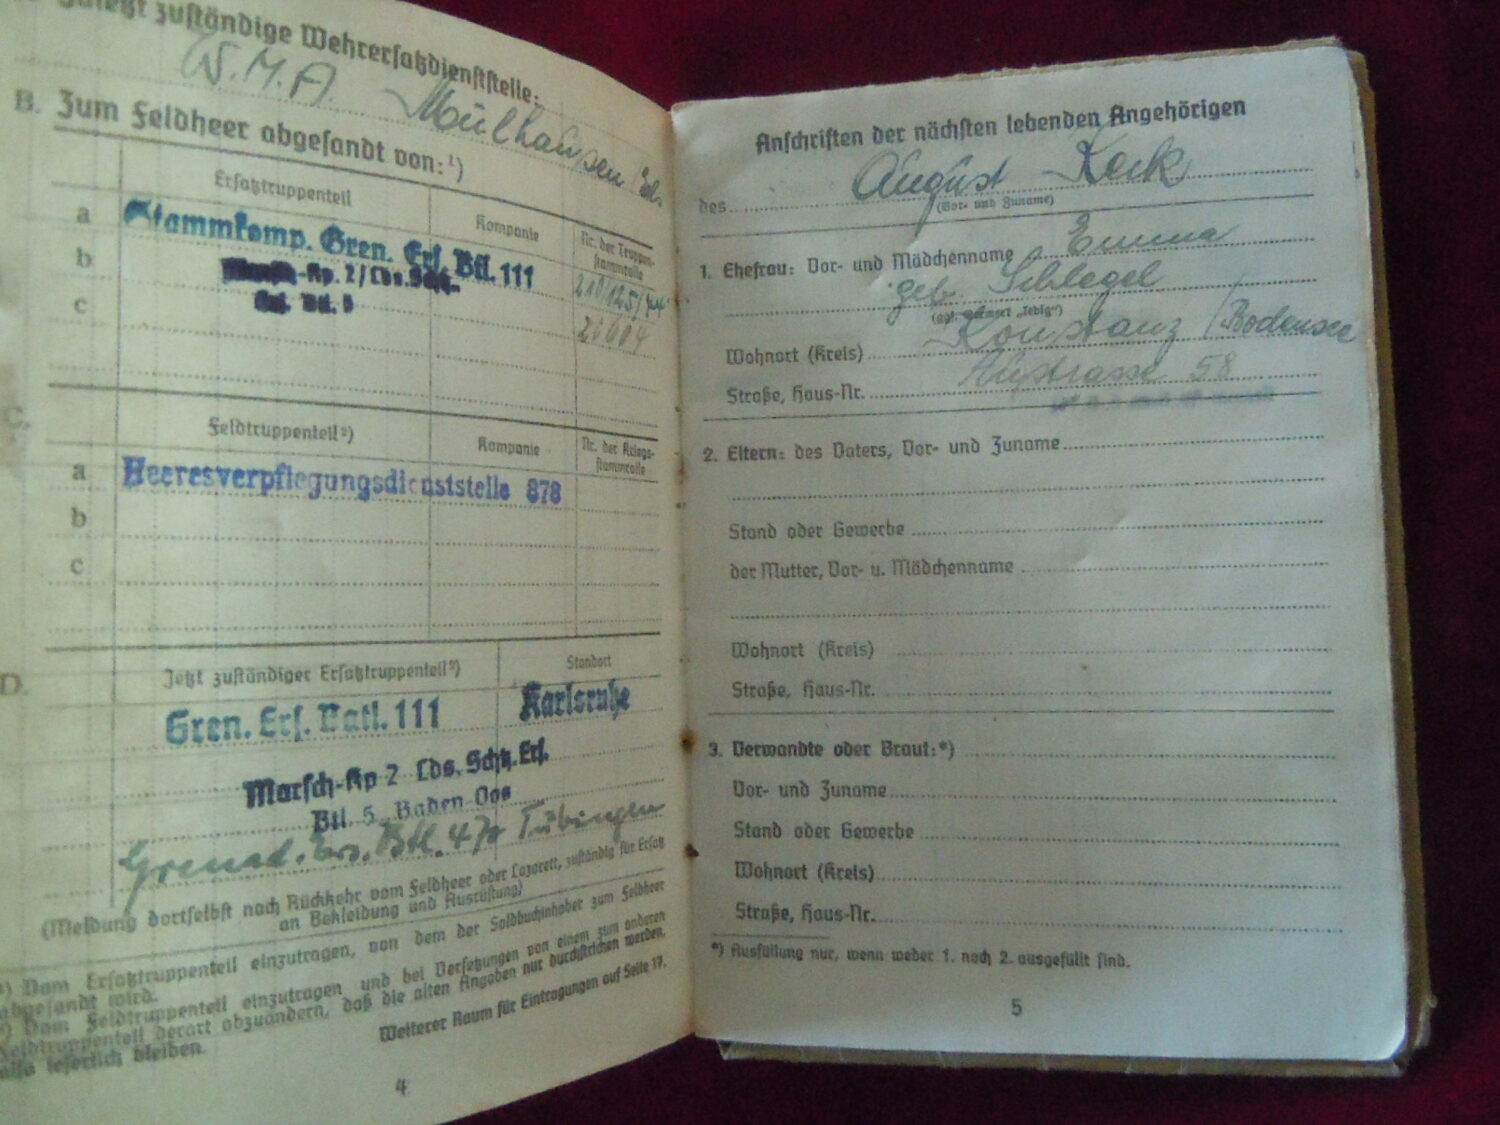 zuletzt zuständige Wehrersatzdienststelle:
W.M.A. Mülhausen
B. Zum Feldheer abgesandt von:¹)
Ersatztruppenteil
Kompanie
Nr. der Truppen-
stammrolle
a
Stammkomp. Gren. Ers. Btl. 111
b
Marsch-Kp. 2/Lds. Schtz.
Ers. Btl. 5
c
C.
Feldtruppenteil²)
Kompanie
Nr. der Kriegs-
stammrolle
a
Heeresverpflegungsdienststelle 878
b
c
D.
Jetzt zuständiger Ersatztruppenteil²)
Standort
Gren. Ers. Batl. 111
Karlsruhe
Marsch-Kp 2 Lds. Schtz. Ers.
Btl. 5 Baden-Oos
Grenad. Ers. Btl. 470 Tübingen
(Meldung dortselbst nach Rückkehr vom Feldheer oder Lazarett, zuständig für Ersatz
an Bekleidung und Ausrüstung)
¹) Vom Ersatztruppenteil einzutragen, von dem der Soldbuchinhaber zum Feldheer
abgesandt wird.
²) Vom Feldtruppenteil einzutragen und bei Versetzungen von einem zum anderen
Feldtruppenteil derart abzuändern, daß die alten Angaben nur durchstrichen werden,
also leserlich bleiben.
Weiterer Raum für Eintragungen auf Seite 17.
4
Anschriften der nächsten lebenden Angehörigen
des August Keck
(Vor- und Zuname)
1. Ehefrau: Vor- und Mädchenname Emma
geb. Schlegel
(ggf. Vermerk „ledig")
Wohnort (Kreis) Konstanz / Bodensee
Straße, Haus-Nr. 58
2. Eltern: des Vaters, Vor- und Zuname
Stand oder Gewerbe
der Mutter, Vor- u. Mädchenname
Wohnort (Kreis)
Straße, Haus-Nr.
3. Verwandte oder Braut:*)
Vor- und Zuname
Stand oder Gewerbe
Wohnort (Kreis)
Straße, Haus-Nr.
*) Ausfüllung nur, wenn weder 1. noch 2. ausgefüllt sind.
5